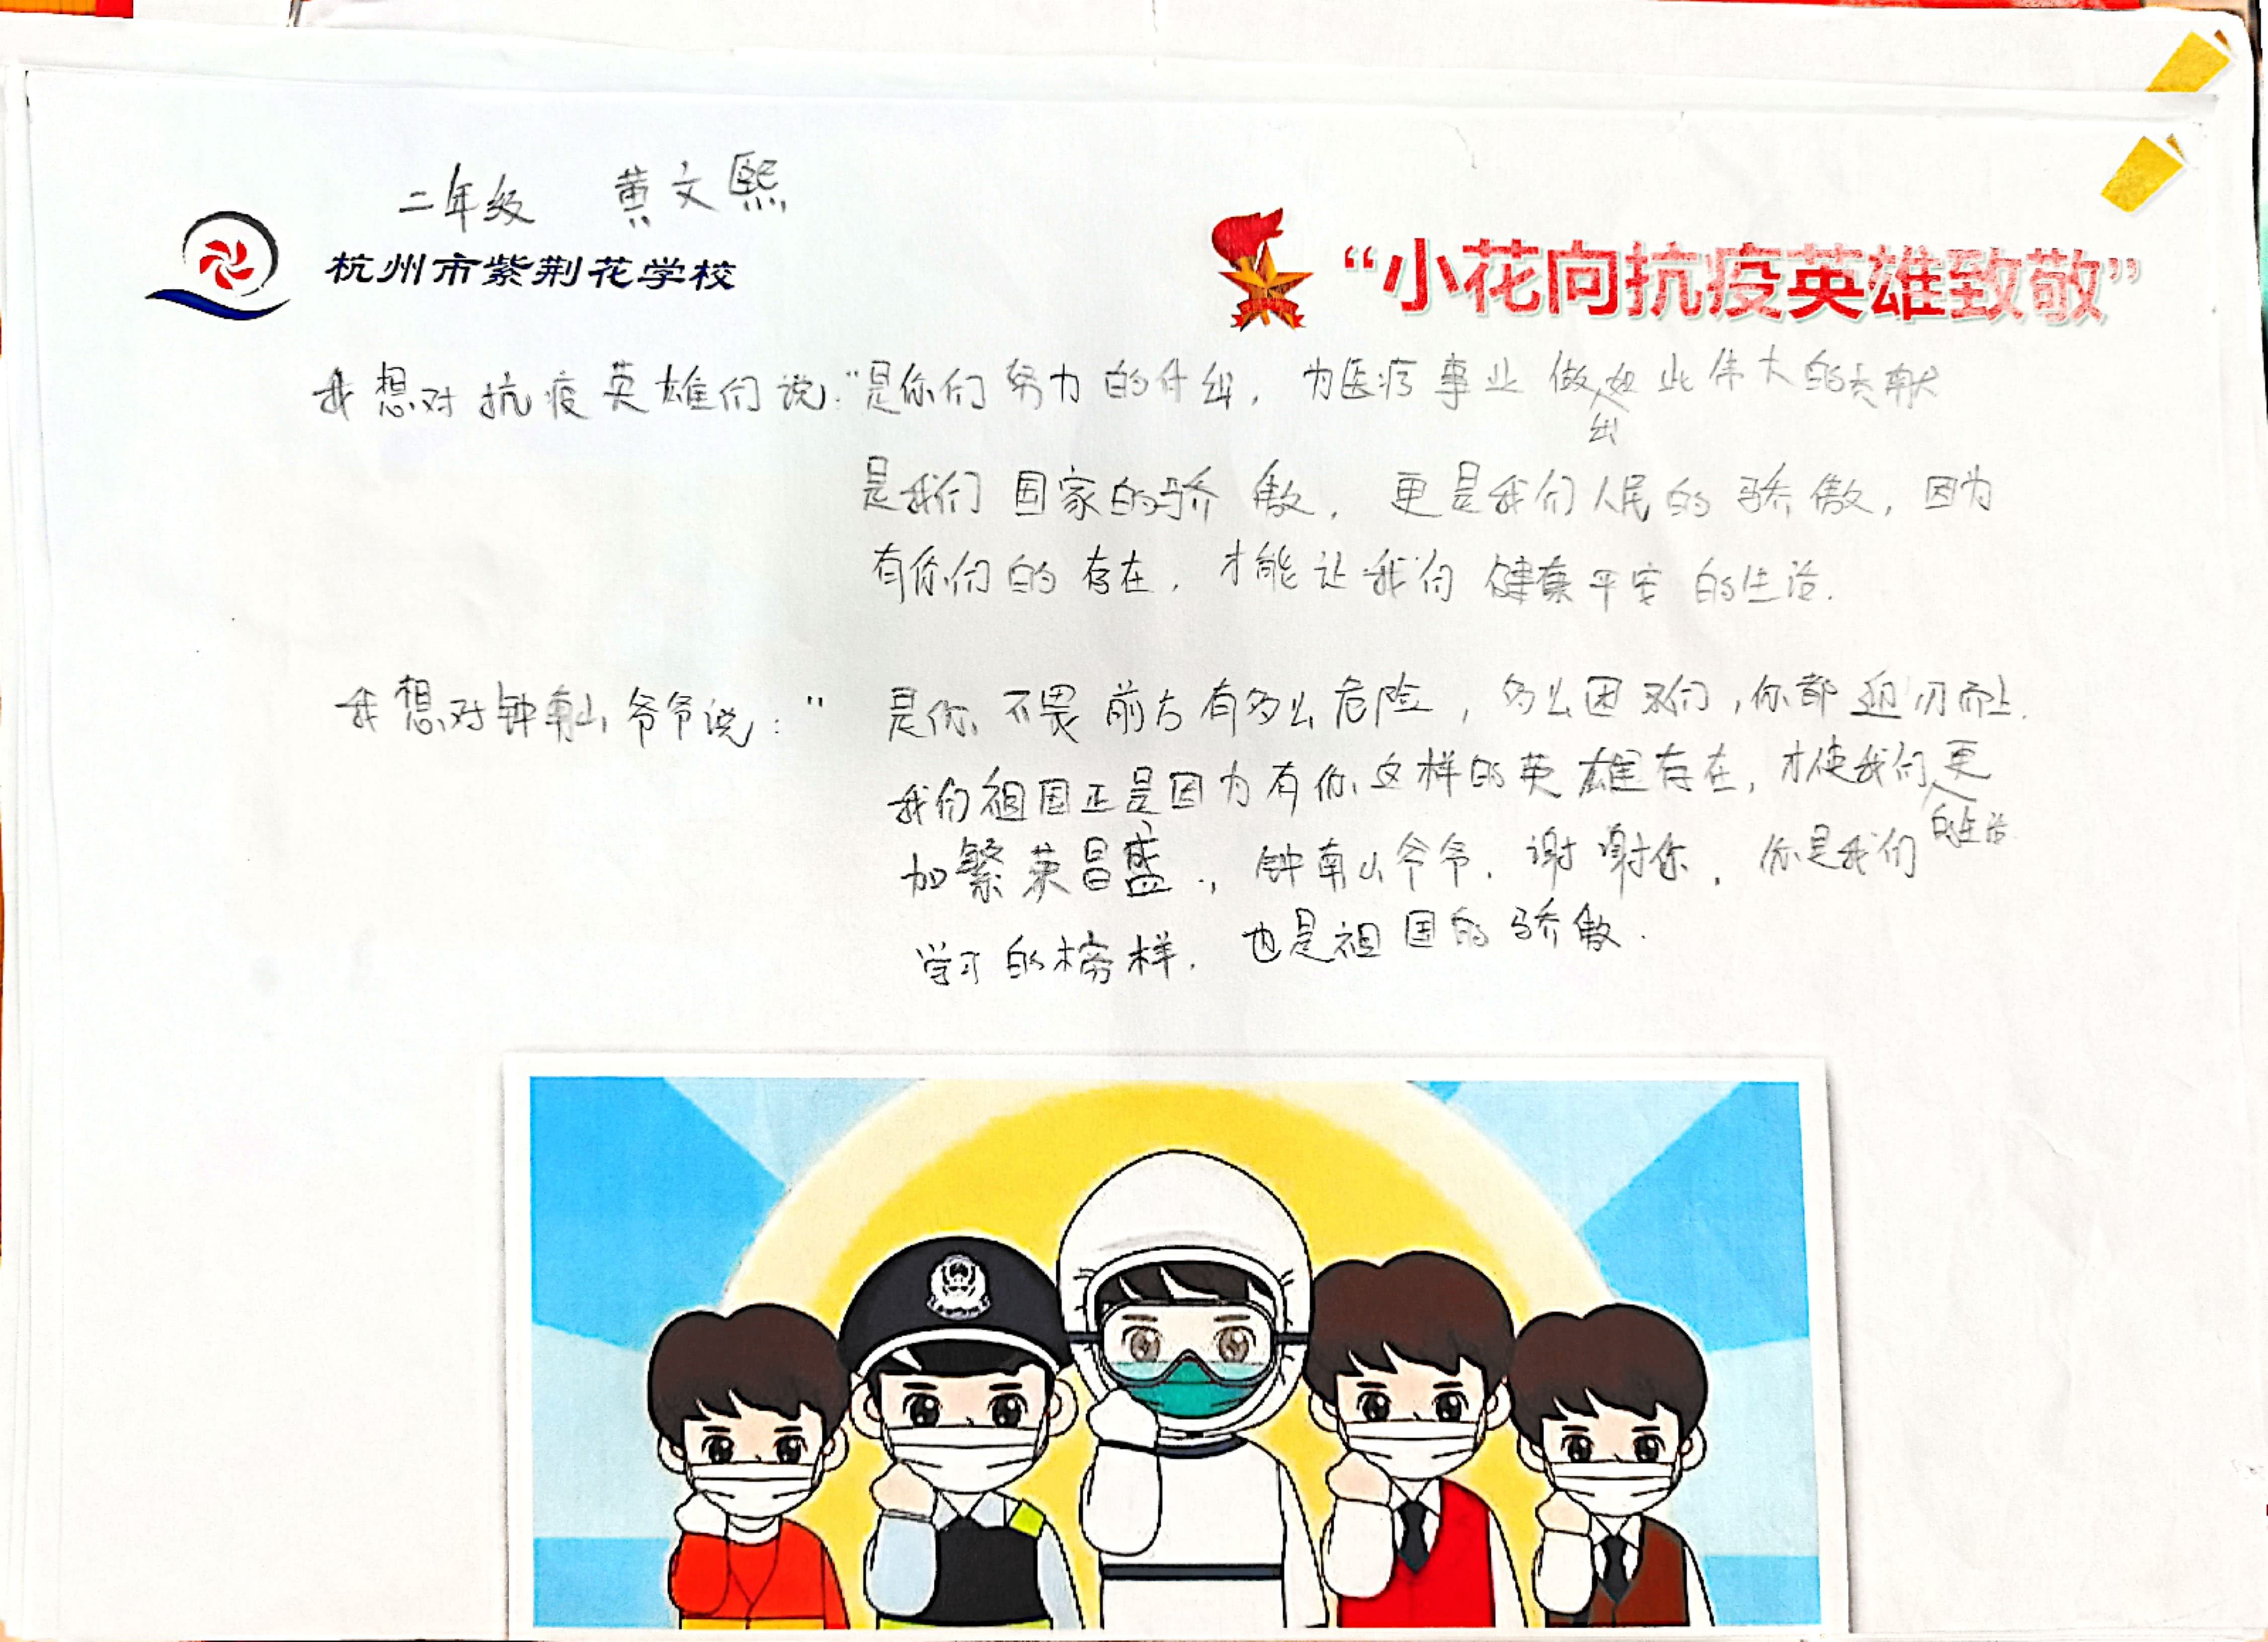 二年级 黄文熙
杭州市紫荆花学校
“小花向抗疫英雄致敬”
我想对抗疫英雄们说:“是你们努力的付出,为医疗事业做出如此伟大的贡献
是我们国家的骄傲,更是我们人民的骄傲,因为
有你们的存在,才能让我们健康平安的生活.
我想对钟南山爷爷说:“是你不畏前方有多么危险,多么困难,你都迎刃而上.
我们祖国正是因为有你这样的英雄存在,才使我们的生活更
加繁荣昌盛,钟南山爷爷.谢谢你.你是我们
学习的榜样.也是祖国的骄傲.